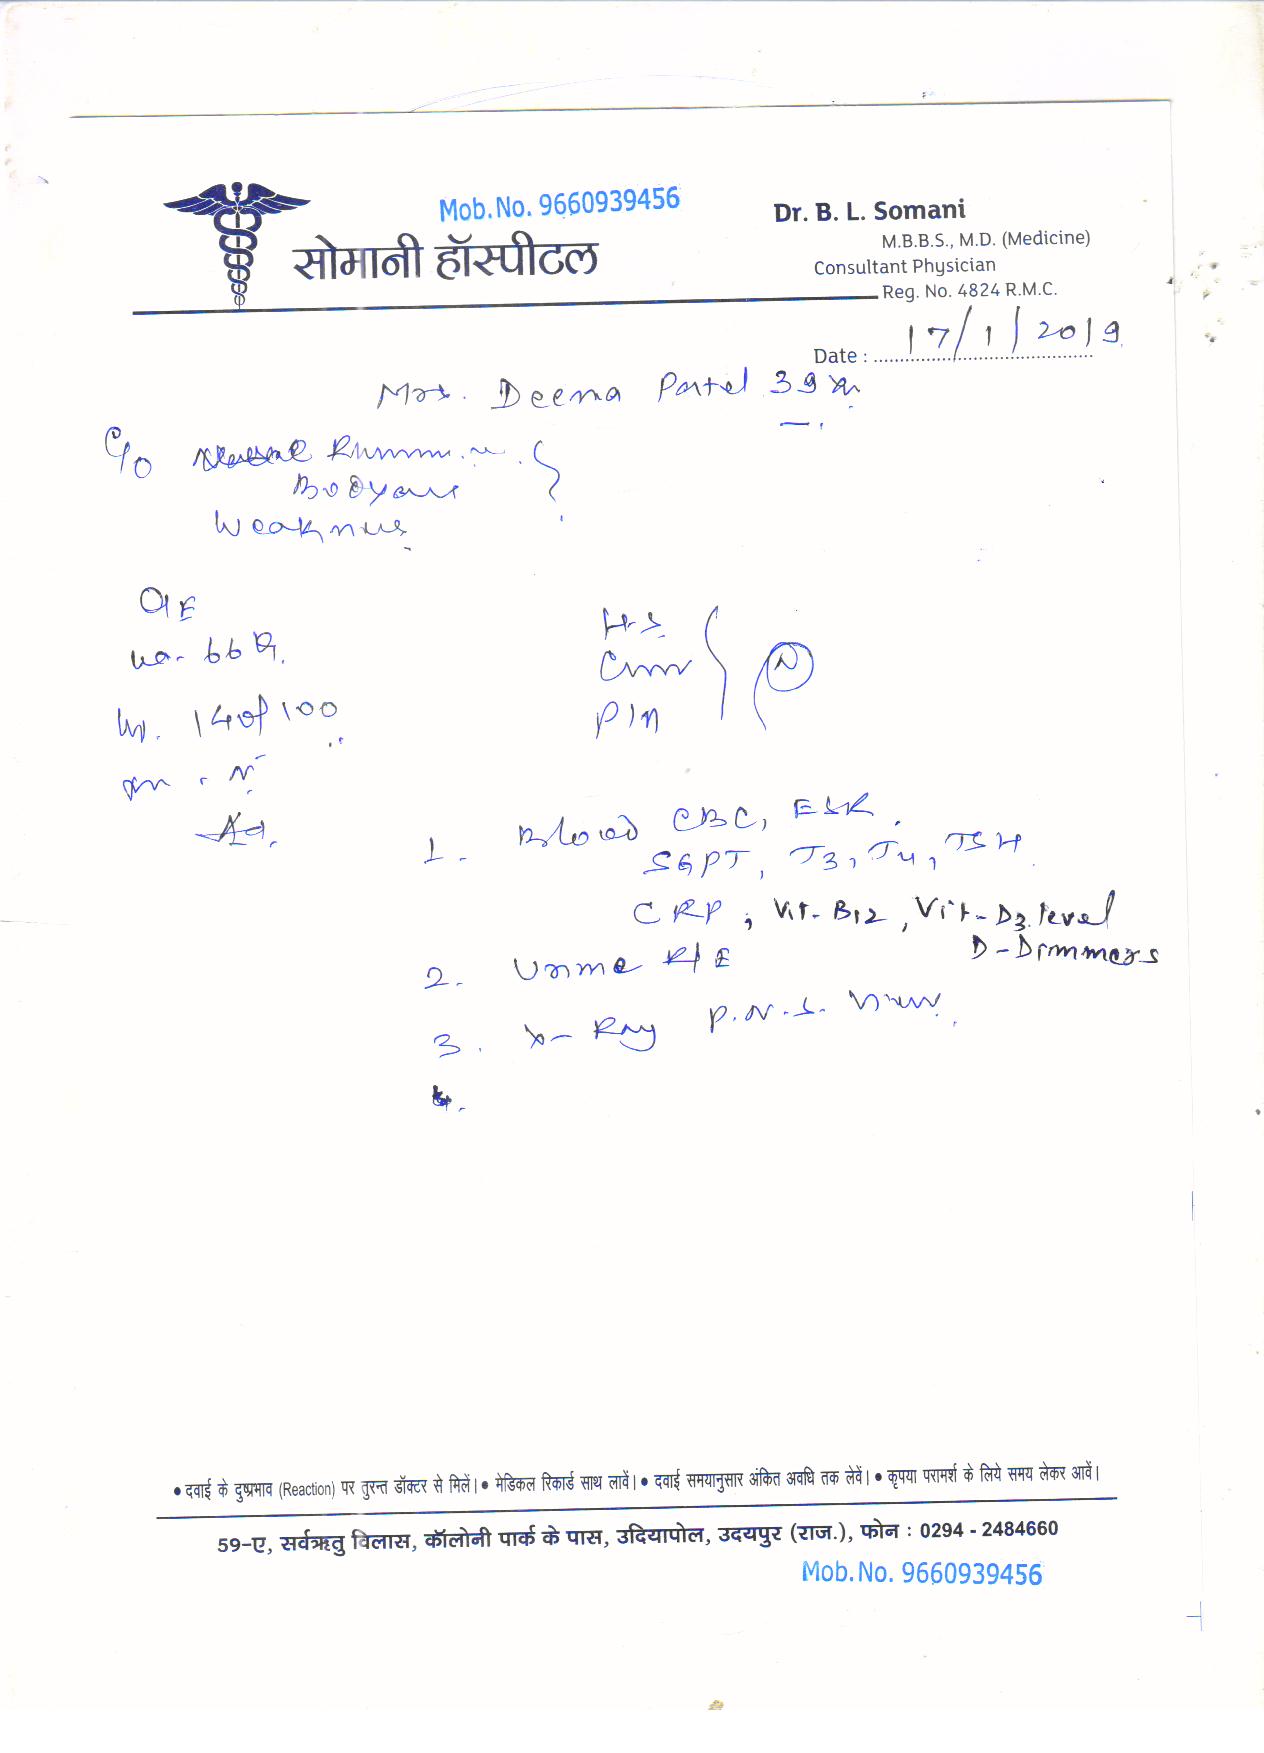 Mob.No. 9660939456
सोमानी हॉस्पीटल
Dr. B. L. Somani
M.B.B.S., M.D. (Medicine)
Consultant Physician
Reg. No. 4824 R.M.C.
Date : 17/1/2019
Mrs. Deema Patel 39
C/O Nasal Running
Bodyache
Weakness
O/E
66
140/100
N
H.S
P/A
N
Ad.
1. Blood CBC, ESR,
SGPT, T3, T4, TSH
CRP, Vit-B12, Vit-D3 level
D-Dimmers
2. Urine R/E
3. X-Ray P.N.S. View
4.
• दवाई के दुष्प्रभाव (Reaction) पर तुरन्त डॉक्टर से मिलें। • मेडिकल रिकार्ड साथ लावें। • दवाई समयानुसार अंकित अवधि तक लेवें। • कृपया परामर्श के लिये समय लेकर आवें।
59-ए, सर्वऋतु विलास, कॉलोनी पार्क के पास, उदियापोल, उदयपुर (राज.), फोन : 0294 - 2484660
Mob.No. 9660939456